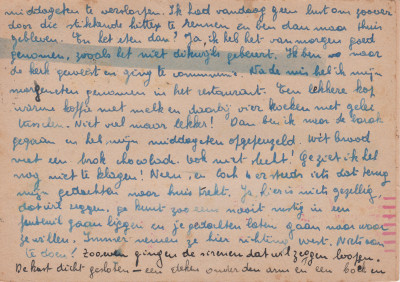 middageten te verslapen. Ik had vandaag geen lust om zoover
door die stikkende hitte te rennen en ben dan maar thuis
gebleven. En het eten dan? Ja, ik heb het van morgen goed
genomen, zooals het niet dikwijls gebeurt. Ik ben naar
de kerk geweest en ging te communie. Na de mis heb ik mijn
morgeneten genomen in het restaurant. Een lekkere kop
warme koffie met melk en daarbij vier koeken met gelei
tusschen. Niet veel maar lekker! Dan ben ik naar de barak
gegaan en heb mijn middageten opgepeuzeld. Wit brood
met een brok chocolade. Ook niet slecht! Ge ziet ik heb
nog niet te klagen! Neen, en toch is er steeds iets dat terug
mijn gedachten naar huis trekt. Ja, hier is niets gezellig,
dat wil zeggen, ge kunt zoo eens nooit rustig in een
fauteuil gaan liggen en je gedachten laten gaan naar waar
ze willen. Immer nemen ze hier richting West. Niets aan
te doen! Zooeven gingen de sirenen dat wil zeggen loopen.
De kast dicht gesloten - een deken onder den arm en een boek en